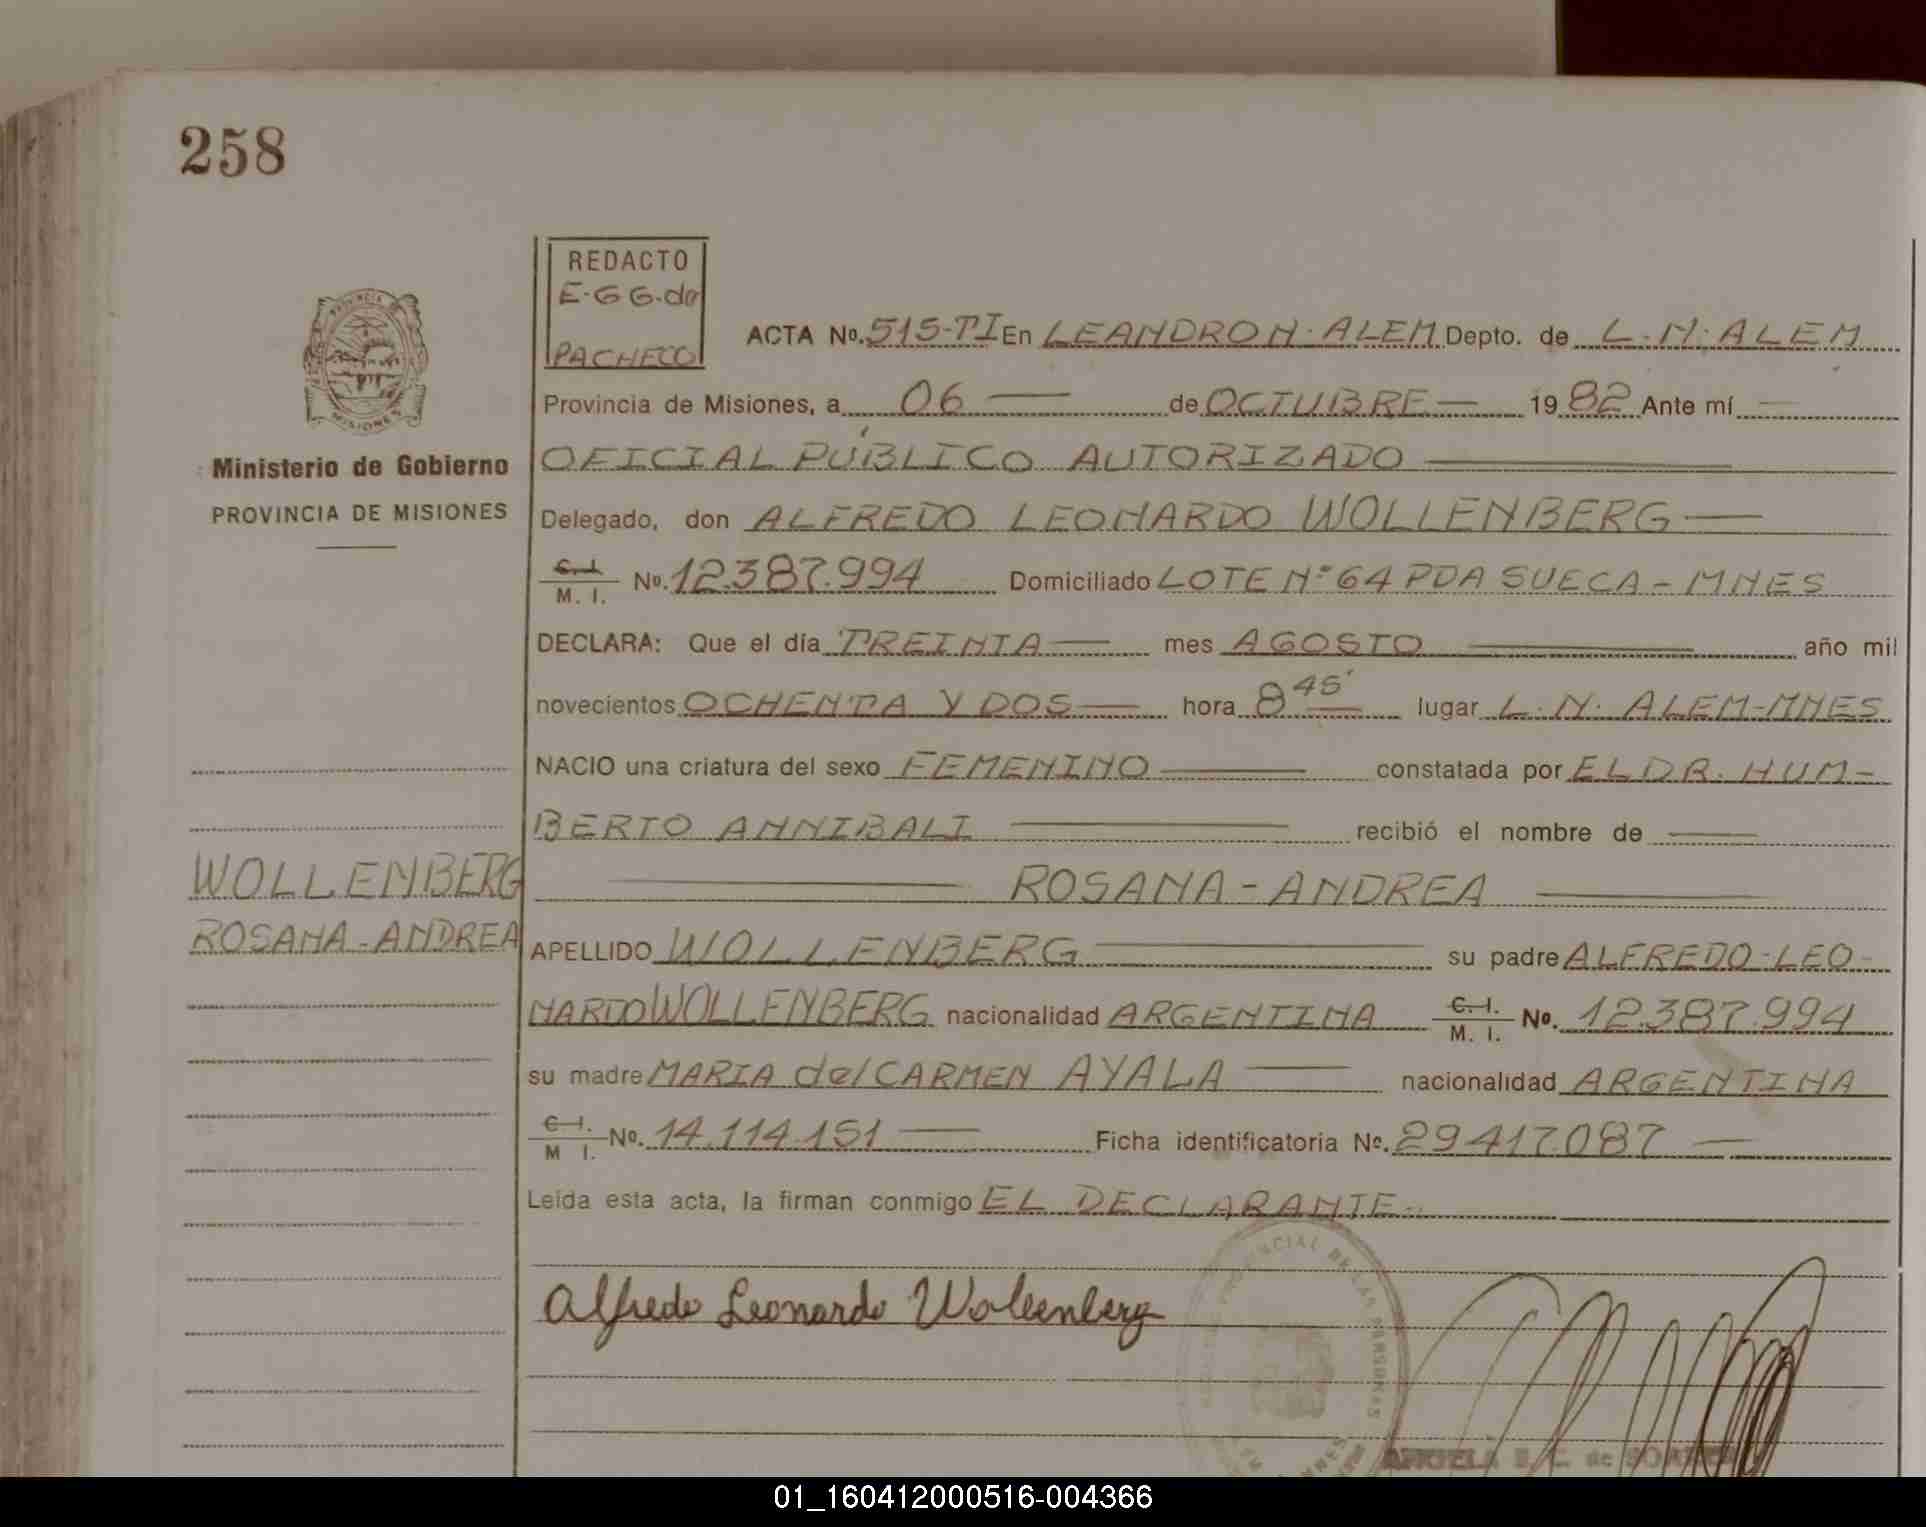 258
REDACTO
E-G G. de
PACHECO
PROVINCIA DE
MISIONES
Ministerio de Gobierno
PROVINCIA DE MISIONES
ACTA Nº. 515-TI En LEANDRO N. ALEM Depto. de L. N. ALEM
Provincia de Misiones, a 06 — de OCTUBRE — 1982 Ante mí —
OFICIAL PÚBLICO AUTORIZADO —
Delegado, don ALFREDO LEONARDO WOLLENBERG —
C. I. / M. I. Nº. 12.387.994 Domiciliado LOTE Nº 64 PDA SUECA - MNES
DECLARA: Que el día TREINTA — mes AGOSTO — año mil
novecientos OCHENTA Y DOS — hora 8 45' lugar L. N. ALEM-MNES
NACIO una criatura del sexo FEMENINO — constatada por EL DR. HUM-
BERTO ANNIBALI — recibió el nombre de —
— ROSANA - ANDREA —
WOLLENBERG
ROSANA - ANDREA
APELLIDO WOLLENBERG — su padre ALFREDO - LEO-
NARDO WOLLENBERG nacionalidad ARGENTINA C. I. / M. I. Nº. 12.387.994
su madre MARIA del CARMEN AYALA — nacionalidad ARGENTINA
C I. / M I. Nº. 14.114.151 — Ficha identificatoria Nº. 29417.087 —
Leída esta acta, la firman conmigo EL DECLARANTE.
Alfredo Leonardo Wollenberg
PROVINCIAL DE LAS PERSONAS
MNES
C. de
01_160412000516-004366